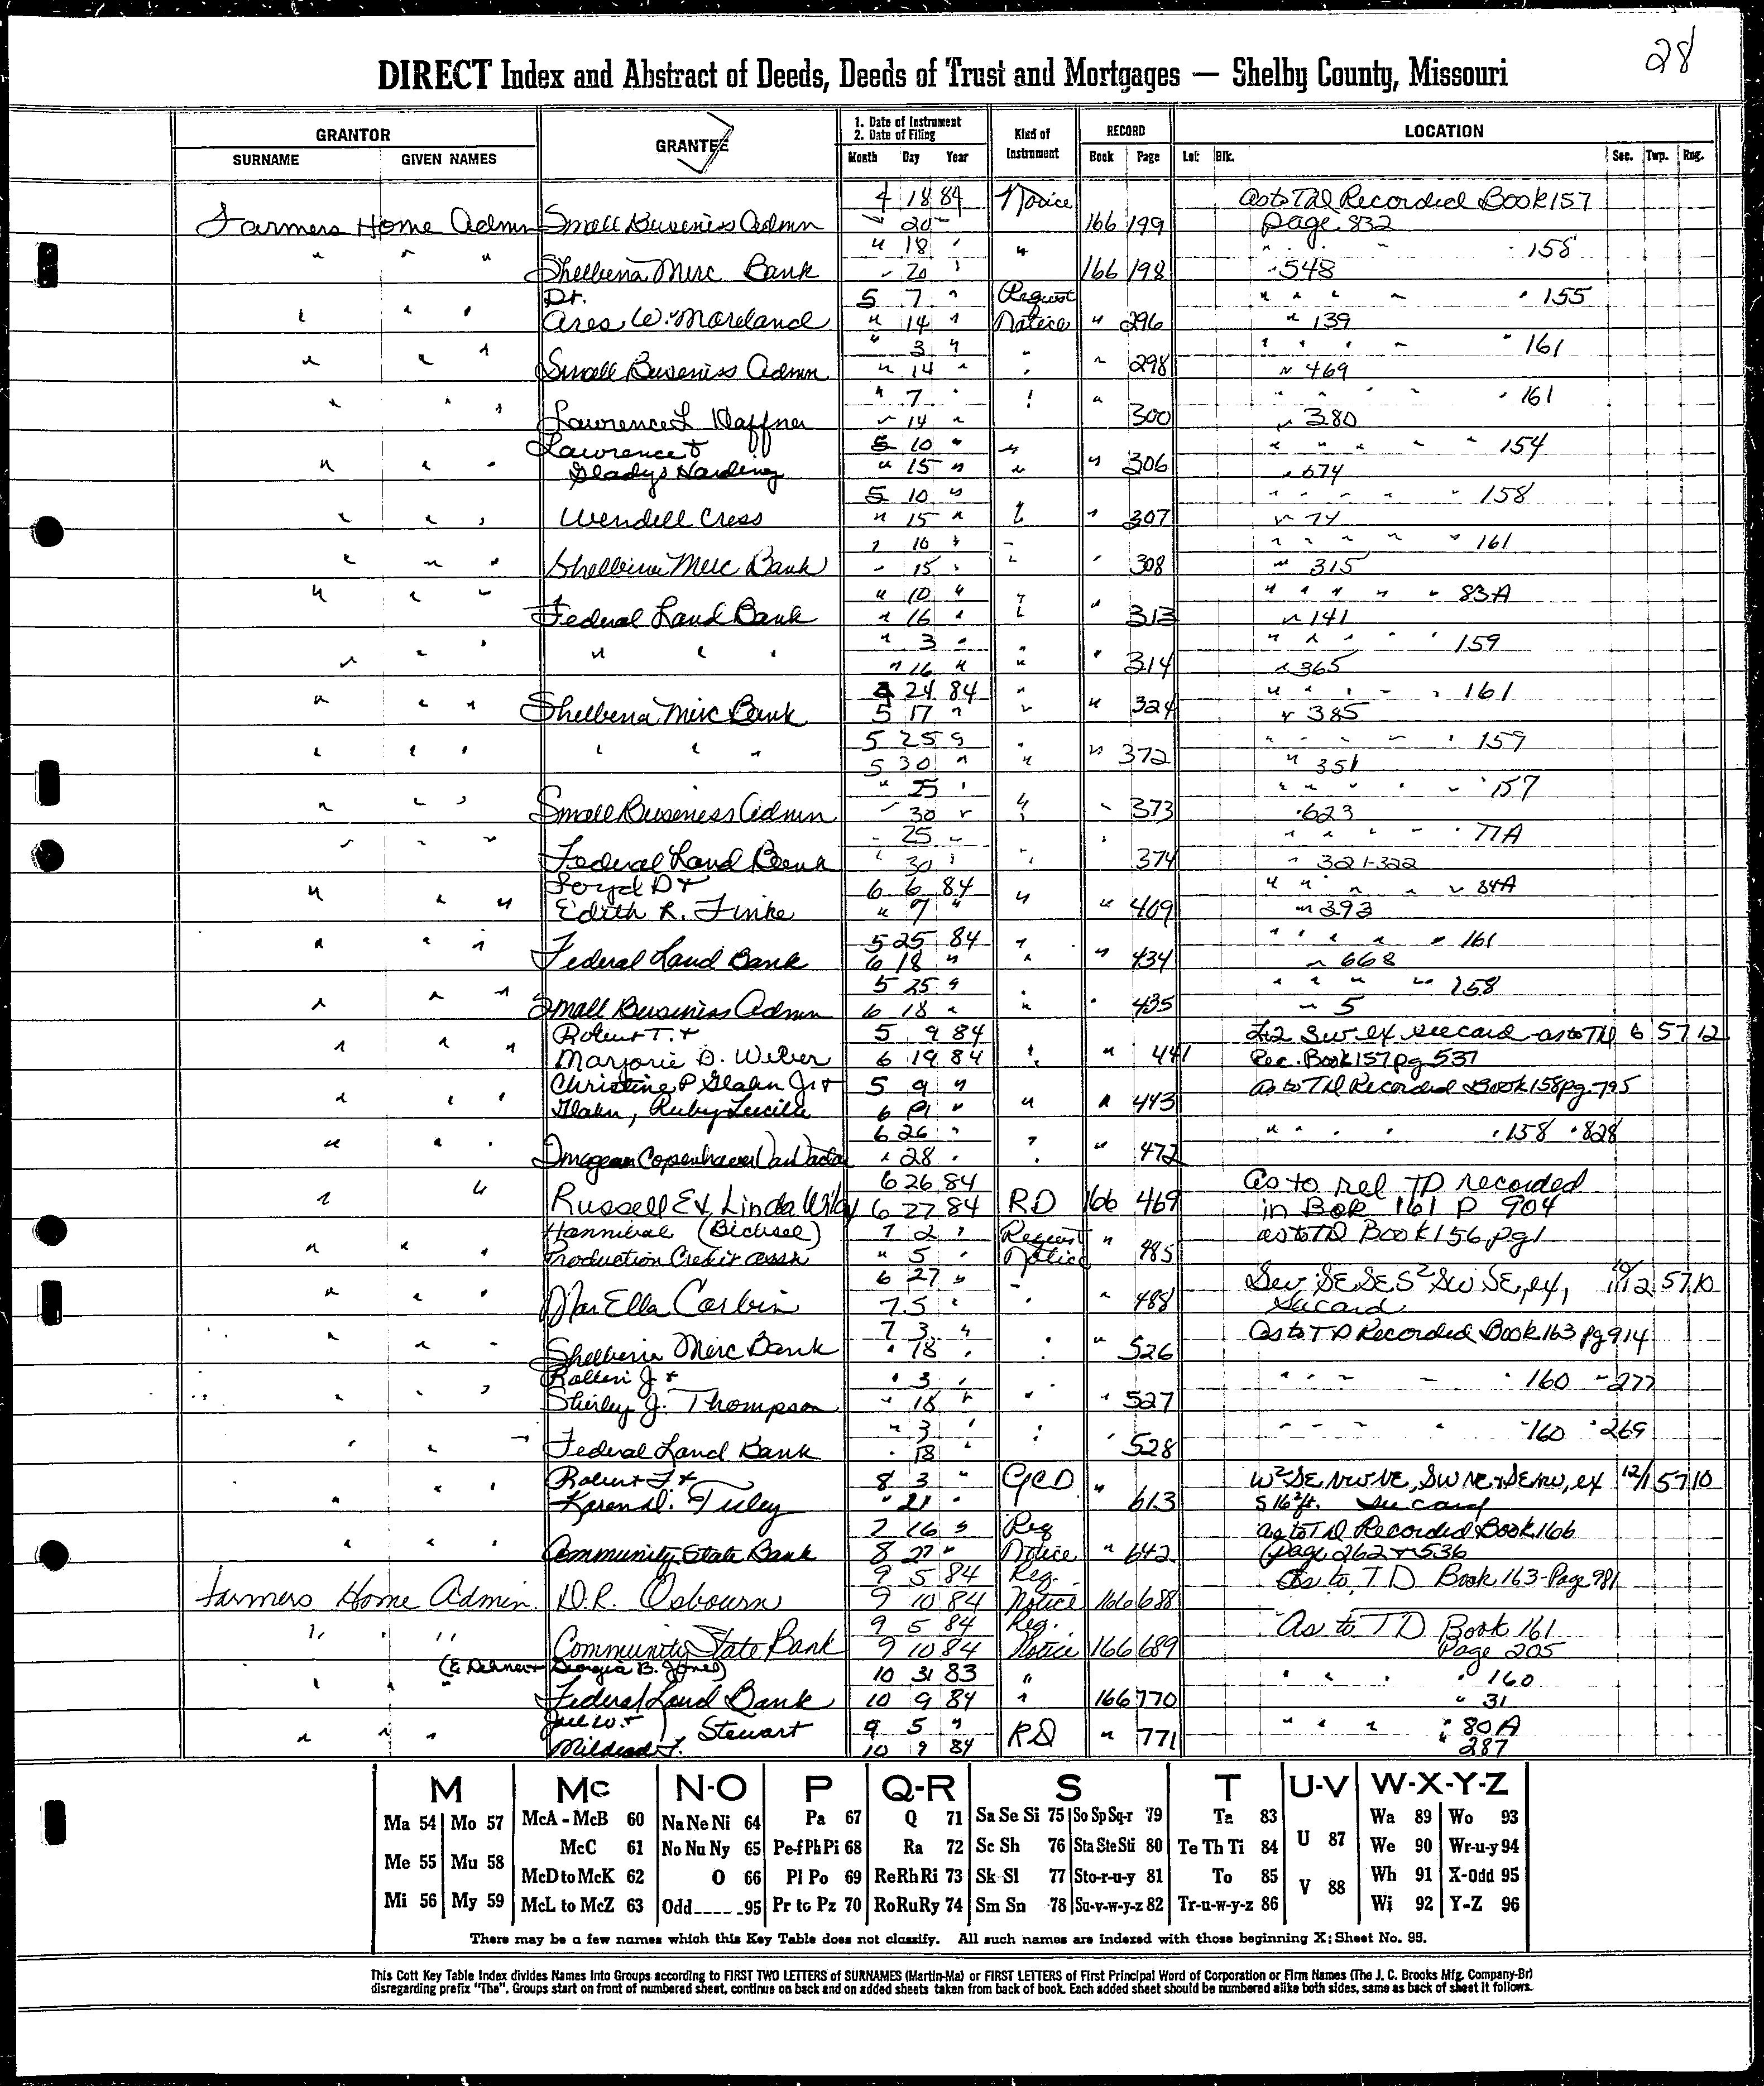 28
DIRECT Index and Abstract of Deeds, Deeds of Trust and Mortgages — Shelby County, Missouri
GRANTOR GRANTEE 1. Date of Instrument 2. Date of Filing Kind of Instrument RECORD LOCATION
SURNAME GIVEN NAMES Month Day Year Book Page Lot Blk. Sec. Twp. Rng.
4 18 84 Notice as to TD Recorded Book 157
Farmers Home Admn Small Buseniss Admn " 20 166 199 page 832
" " " " 18 " " " " 158
Shelbena Merc Bank " 20 " 166 198 " 548
Dr. 5 7 " Request " " " " " 155
" " " Ares W. Moreland " 14 " Notice " 296 " 139
" 3 " " " " " " 161
" " " Small Buseniss Admn " 14 " " " 298 " 469
" 7 " " " " " " 161
" " " Lawrence L Haffner " 14 " " 300 " 380
Lawrence + 5 10 " " " " " " " 154
" " " Gladys Harding " 15 " " " 306 " 674
5 10 " " " " " " 158
" " " Wendell Cress " 15 " " " 307 " 74
" 10 " " " " " " " 161
" " " Shelbina Merc Bank " 15 " " " 308 " 315
" " " " 10 " " " " " " " 83A
Federal Land Bank " 16 " " " 313 " 141
" 3 " " " " " " 159
" " " " " " " 16 " " " 314 " 365
4 24 84 " " " " " " 161
" " " Shelbena Merc Bank 5 17 " " " 324 " 385
5 25 " " " " " " 159
" " " " " " 5 30 " " " 372 " 351
" 25 " " " " " " 157
" " " Small Buseness Admn " 30 " " " 373 " 623
" 25 " " " " " " 77A
" " " Federal Land Bank " 30 " " " 374 " 321-322
Loyd D + 6 6 84 " " " " " 84A
" " " Edith R. Finke " 7 " " " 409 " 393
5 25 84 " " " " " " 161
" " " Federal Land Bank 6 18 " " " 434 " 668
5 25 " " " " " " 158
" " " Small Buseniss Admn 6 18 " " " 435 " 5
Robert T. + 5 9 84 Lt2 Sw ex see card as to TD 6 57 12
" " " Marjorie D. Weber 6 19 84 " " 441 Rec. Book 157 pg 537
Christine P Glahn Jr + 5 9 " as to TD Recorded Book 158 pg 795
" " " Glahn, Ruby Lucille 6 " " " 443
6 26 " " " " " " 158 " 828
" " " Imogean Copenhaver " 28 " " " 472
6 26 84 As to rel TD recorded
" " Russell E +, Linda 6 27 84 RD 166 469 in Book 161 P 904
Hannibal (Bichsel) 7 2 " Request " as to TD Book 156, pg 1
" " " Production Credit assn " 5 " Notice 485
6 27 " Sw SE SE S2 SW SE, ex, 12 57 10
" " " Mar Ella Corbin 7 5 " " " 488 see card
7 3 " as to TD Recorded Book 163 pg 914
" " Shelbena Merc Bank " 18 " " " 526
J + " 3 " " " " " " 160 " 277
" " " Shirley J. Thompson " 18 " " " 527
" 3 " " " " " 160 " 269
" " " Federal Land Bank " 18 " " " 528
Robert + 8 3 " " W2 SE NW NE, SW NE + SE NW, ex 12/1 57 10
" " " Karen D. Tuley " 21 " 613 S 16 2 ft. see card
7 16 " Req as to TD Recorded Book 166
" " " Community State Bank 8 27 " Notice " 642 page 262 + 536
9 5 84 Req. As to TD Book 163-Page 981
Farmers Home Admin. D.R. Osbourn 9 10 84 Notice 166 688
9 5 84 Req. As to TD Book 161
" " " Community State Bank 9 10 84 Notice 166 689 Page 205
Georgia B. Jones) 10 31 83 " " " " " 160
" " " Federal Land Bank 10 9 84 " 166 770 " 31
+ Stewart 9 5 " " " " " 80A
" " " Mildred 10 9 84 RD " 771 " 287
M Mc N-O P Q-R S T U-V W-X-Y-Z
Ma 54 Mo 57 McA - McB 60 Na Ne Ni 64 Pa 67 Q 71 Sa Se Si 75 So Sp Sq-r 79 Ta 83 U 87 Wa 89 Wo 93
Me 55 Mu 58 McC 61 No Nu Ny 65 Pe-f Ph Pi 68 Ra 72 Sc Sh 76 Sta Ste Sti 80 Te Th Ti 84 We 90 Wr-u-y 94
McD to McK 62 O 66 Pl Po 69 Re Rh Ri 73 Sk-Sl 77 Sto-r-u-y 81 To 85 V 88 Wh 91 X-Odd 95
Mi 56 My 59 McL to McZ 63 Odd____95 Pr to Pz 70 Ro Ru Ry 74 Sm Sn 78 Su-v-w-y-z 82 Tr-u-w-y-z 86 Wi 92 Y-Z 96
There may be a few names which this Key Table does not classify. All such names are indexed with those beginning X; Sheet No. 95.
This Cott Key Table Index divides Names Into Groups according to FIRST TWO LETTERS of SURNAMES (Martin-Ma) or FIRST LETTERS of First Principal Word of Corporation or Firm Names (The J. C. Brooks Mfg. Company-Br)
disregarding prefix "The". Groups start on front of numbered sheet, continue on back and on added sheets taken from back of book. Each added sheet should be numbered alike both sides, same as back of sheet it follows.